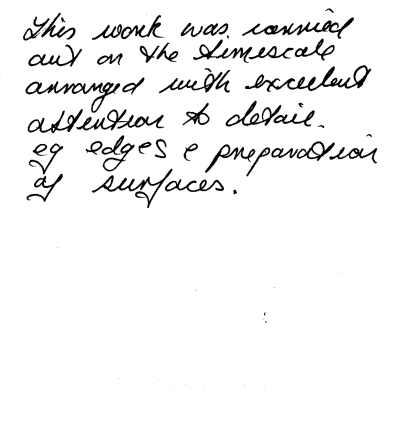 This work was carried
out on the timescale
arranged with excellent
attention to detail.
eg edges e preparation
of surfaces.